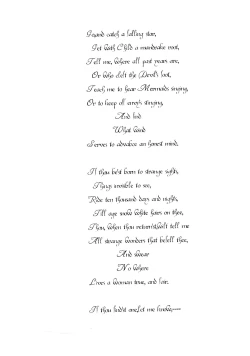 Goe and catch a falling star,
Get with Child a mandrake root,
Tell me, where all past years are,
Or who cleft the Devil's foot,
Teach me to hear Mermaids singing,
Or to keep off envy's stinging,
And find
What wind
Serves to advance an honest mind.
If thou be'st born to strange sights,
Things invisible to see,
Ride ten thousand days and nights,
Till age snow white hairs on thee,
Thou, when thou return'st wilt tell me
All strange wonders that befell thee,
And swear
No where
Lives a woman true, and fair.
If thou find'st one, let me know,